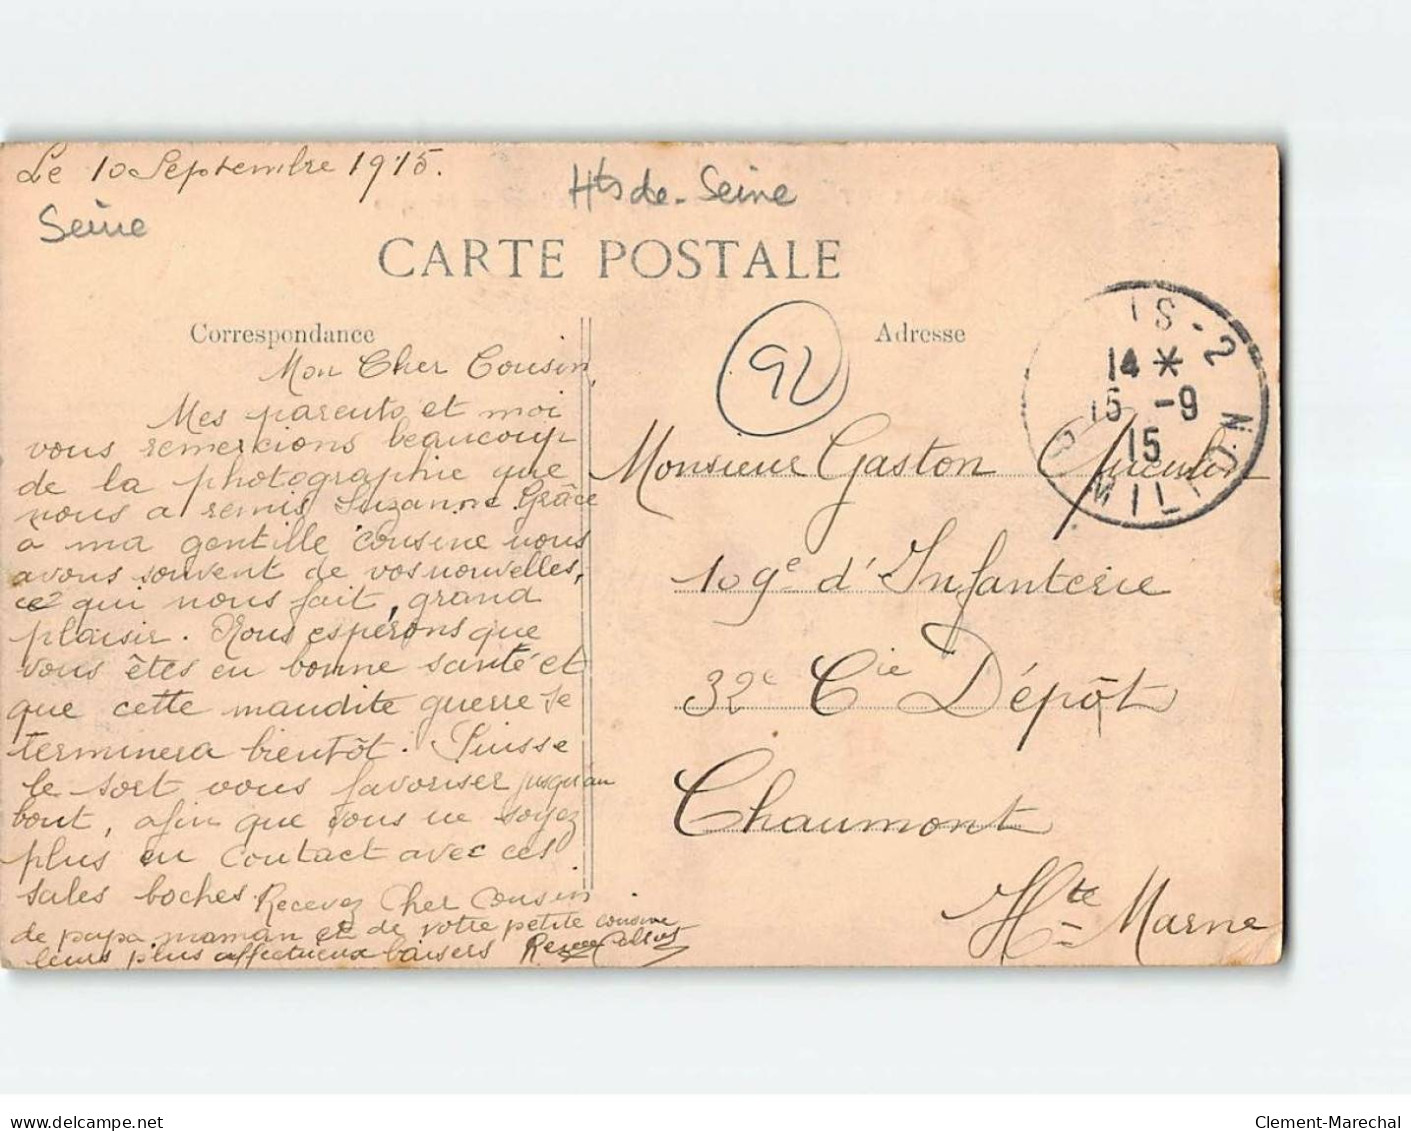 Le 10 Septembre 1915.
Hts de-Seine
Seine
CARTE POSTALE
Correspondance
Mon Cher Cousin,
Mes parents et moi
vous remercions beaucoup
de la photographie que
nous a remis Suzanne. Grâce
a ma gentille cousine nous
avons souvent de vos nouvelles,
ce qui nous fait, grand
plaisir. Nous espérons que
vous êtes en bonne santé et
que cette maudite guerre se
terminera bientôt. Puisse
le sort vous favoriser jusqu'au
bout, afin que vous ne soyez
plus en contact avec ces
sales boches. Recevez Cher Cousin
de papa, maman et de votre petite cousine
leurs plus affectueux baisers
92
Adresse
IS-2
14 *
15 -9
15
MILLON
Monsieur Gaston
109e d'Infanterie
32e Cie Dépôt
Chaumont
Hte Marne
www.delcampe.net
Clement-Marechal